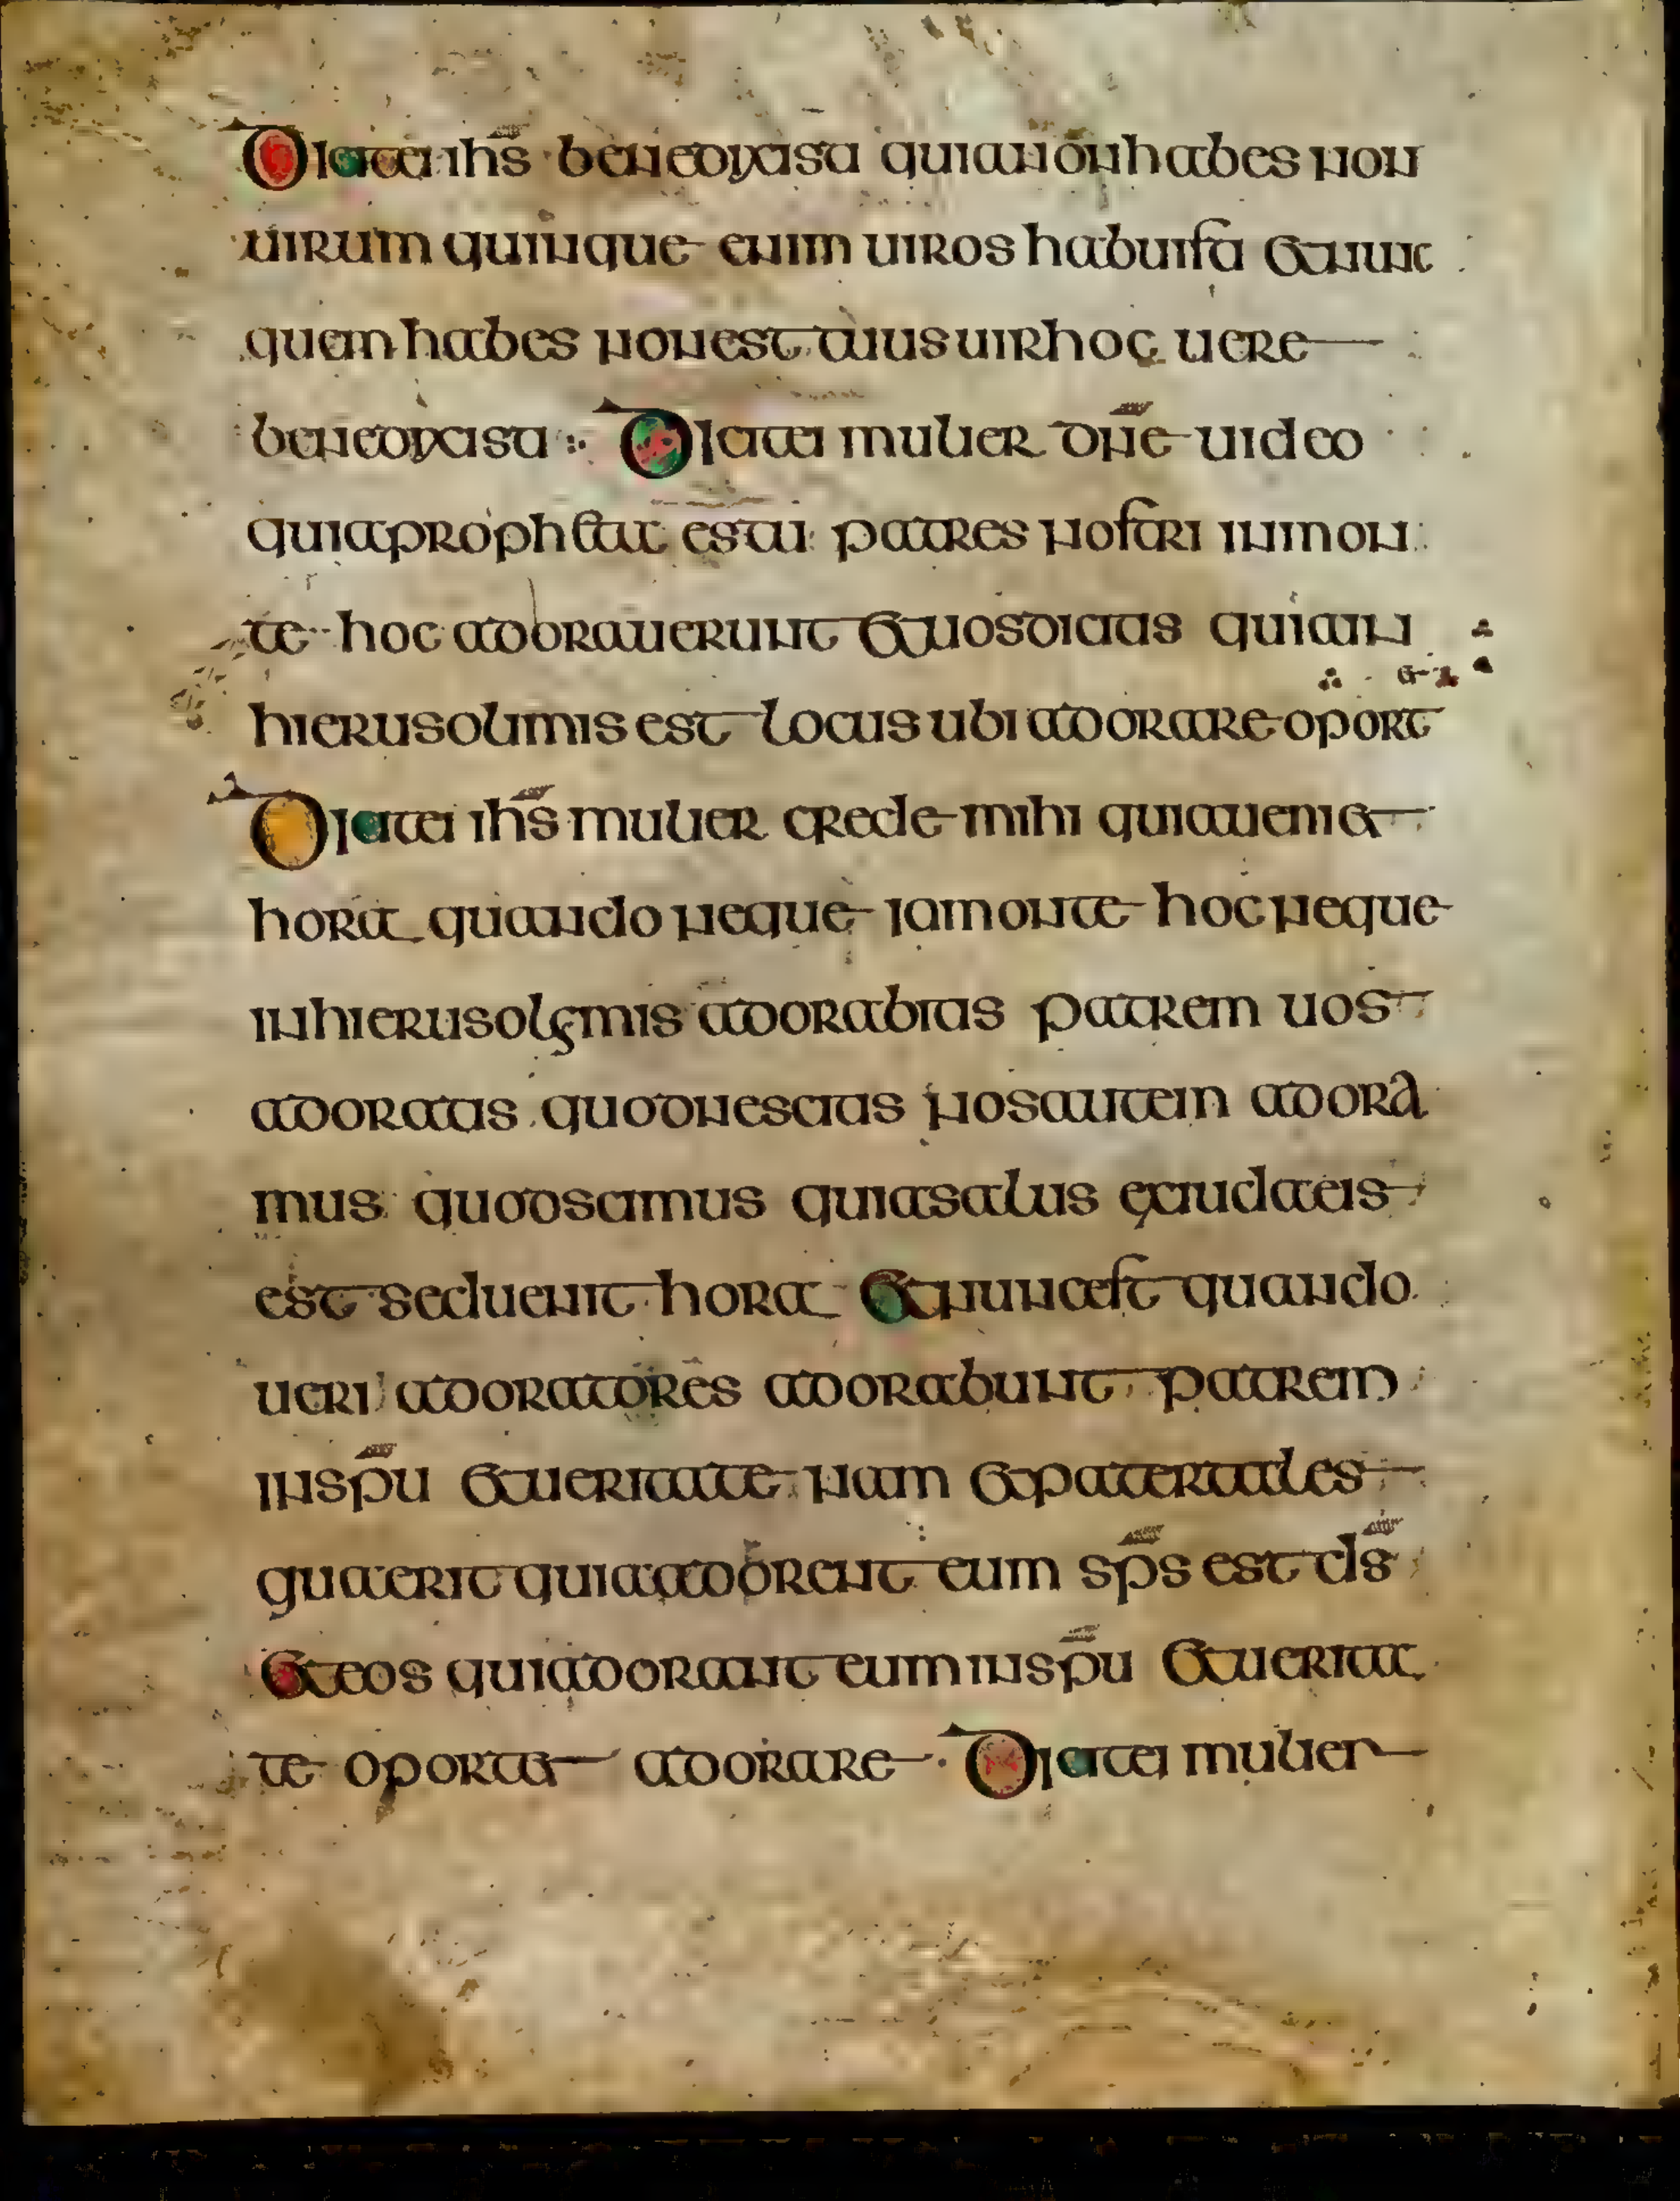 Dicit ei ihs bene dixisti quia non habes non
uirum quinque enim uiros habuisti et nunc
quem habes non est tuus uir hoc uere
bene dixisti Dicit ei mulier dne uideo
quia propheta es tu patres nostri in mon
te hoc adorauerunt et uos dicitis quia in
hierusolimis est locus ubi adorare oport
et
Dicit ei ihs mulier crede mihi quia ueniet
hora quando neque iam onte hoc neque
in hierusolymis adorabitis patrem uos
adoratis quod nescitis nos autem adora
mus quod scimus quia salus ex iudaeis
est sed uenit hora et nunc est quando
ueri adoratores adorabunt patrem
in spu et ueritate nam et pater tales
quaerit qui adorent eum sps est ds
et eos qui adorant eum in spu et uerita
te oportet adorare Dicit ei mulier